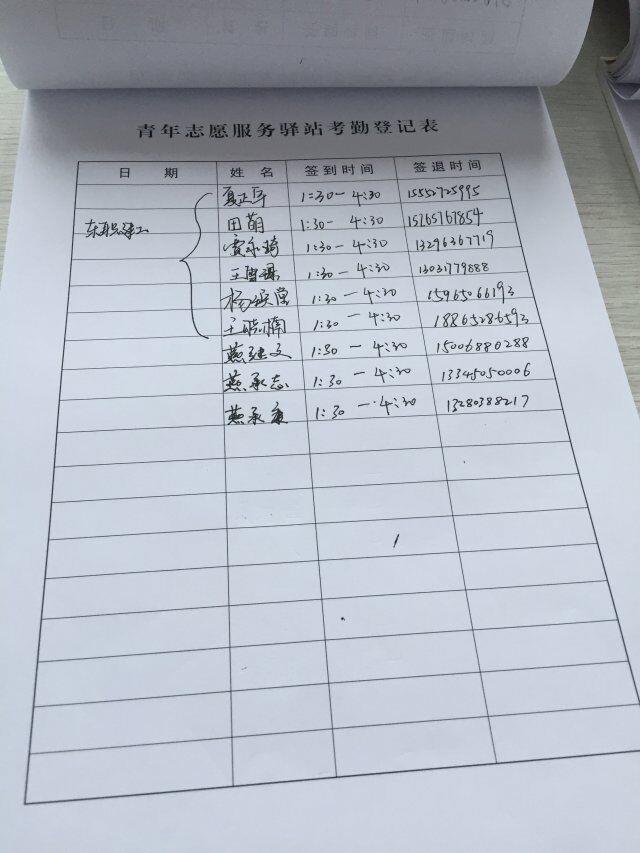 青年志愿服务驿站考勤登记表
日 期 姓 名 签到时间 签退时间
1:30-4:30 15552725995
田萌 1:30-4:30 15765767854
1:30-4:30 13296367719
1:30-4:30 13031779888
1:30-4:30 15965066193
王晓楠 1:30-4:30 18865286593
燕继文 1:30-4:30 15006880288
燕承志 1:30-4:30 13345050006
燕承 1:30-4:30 13280388217